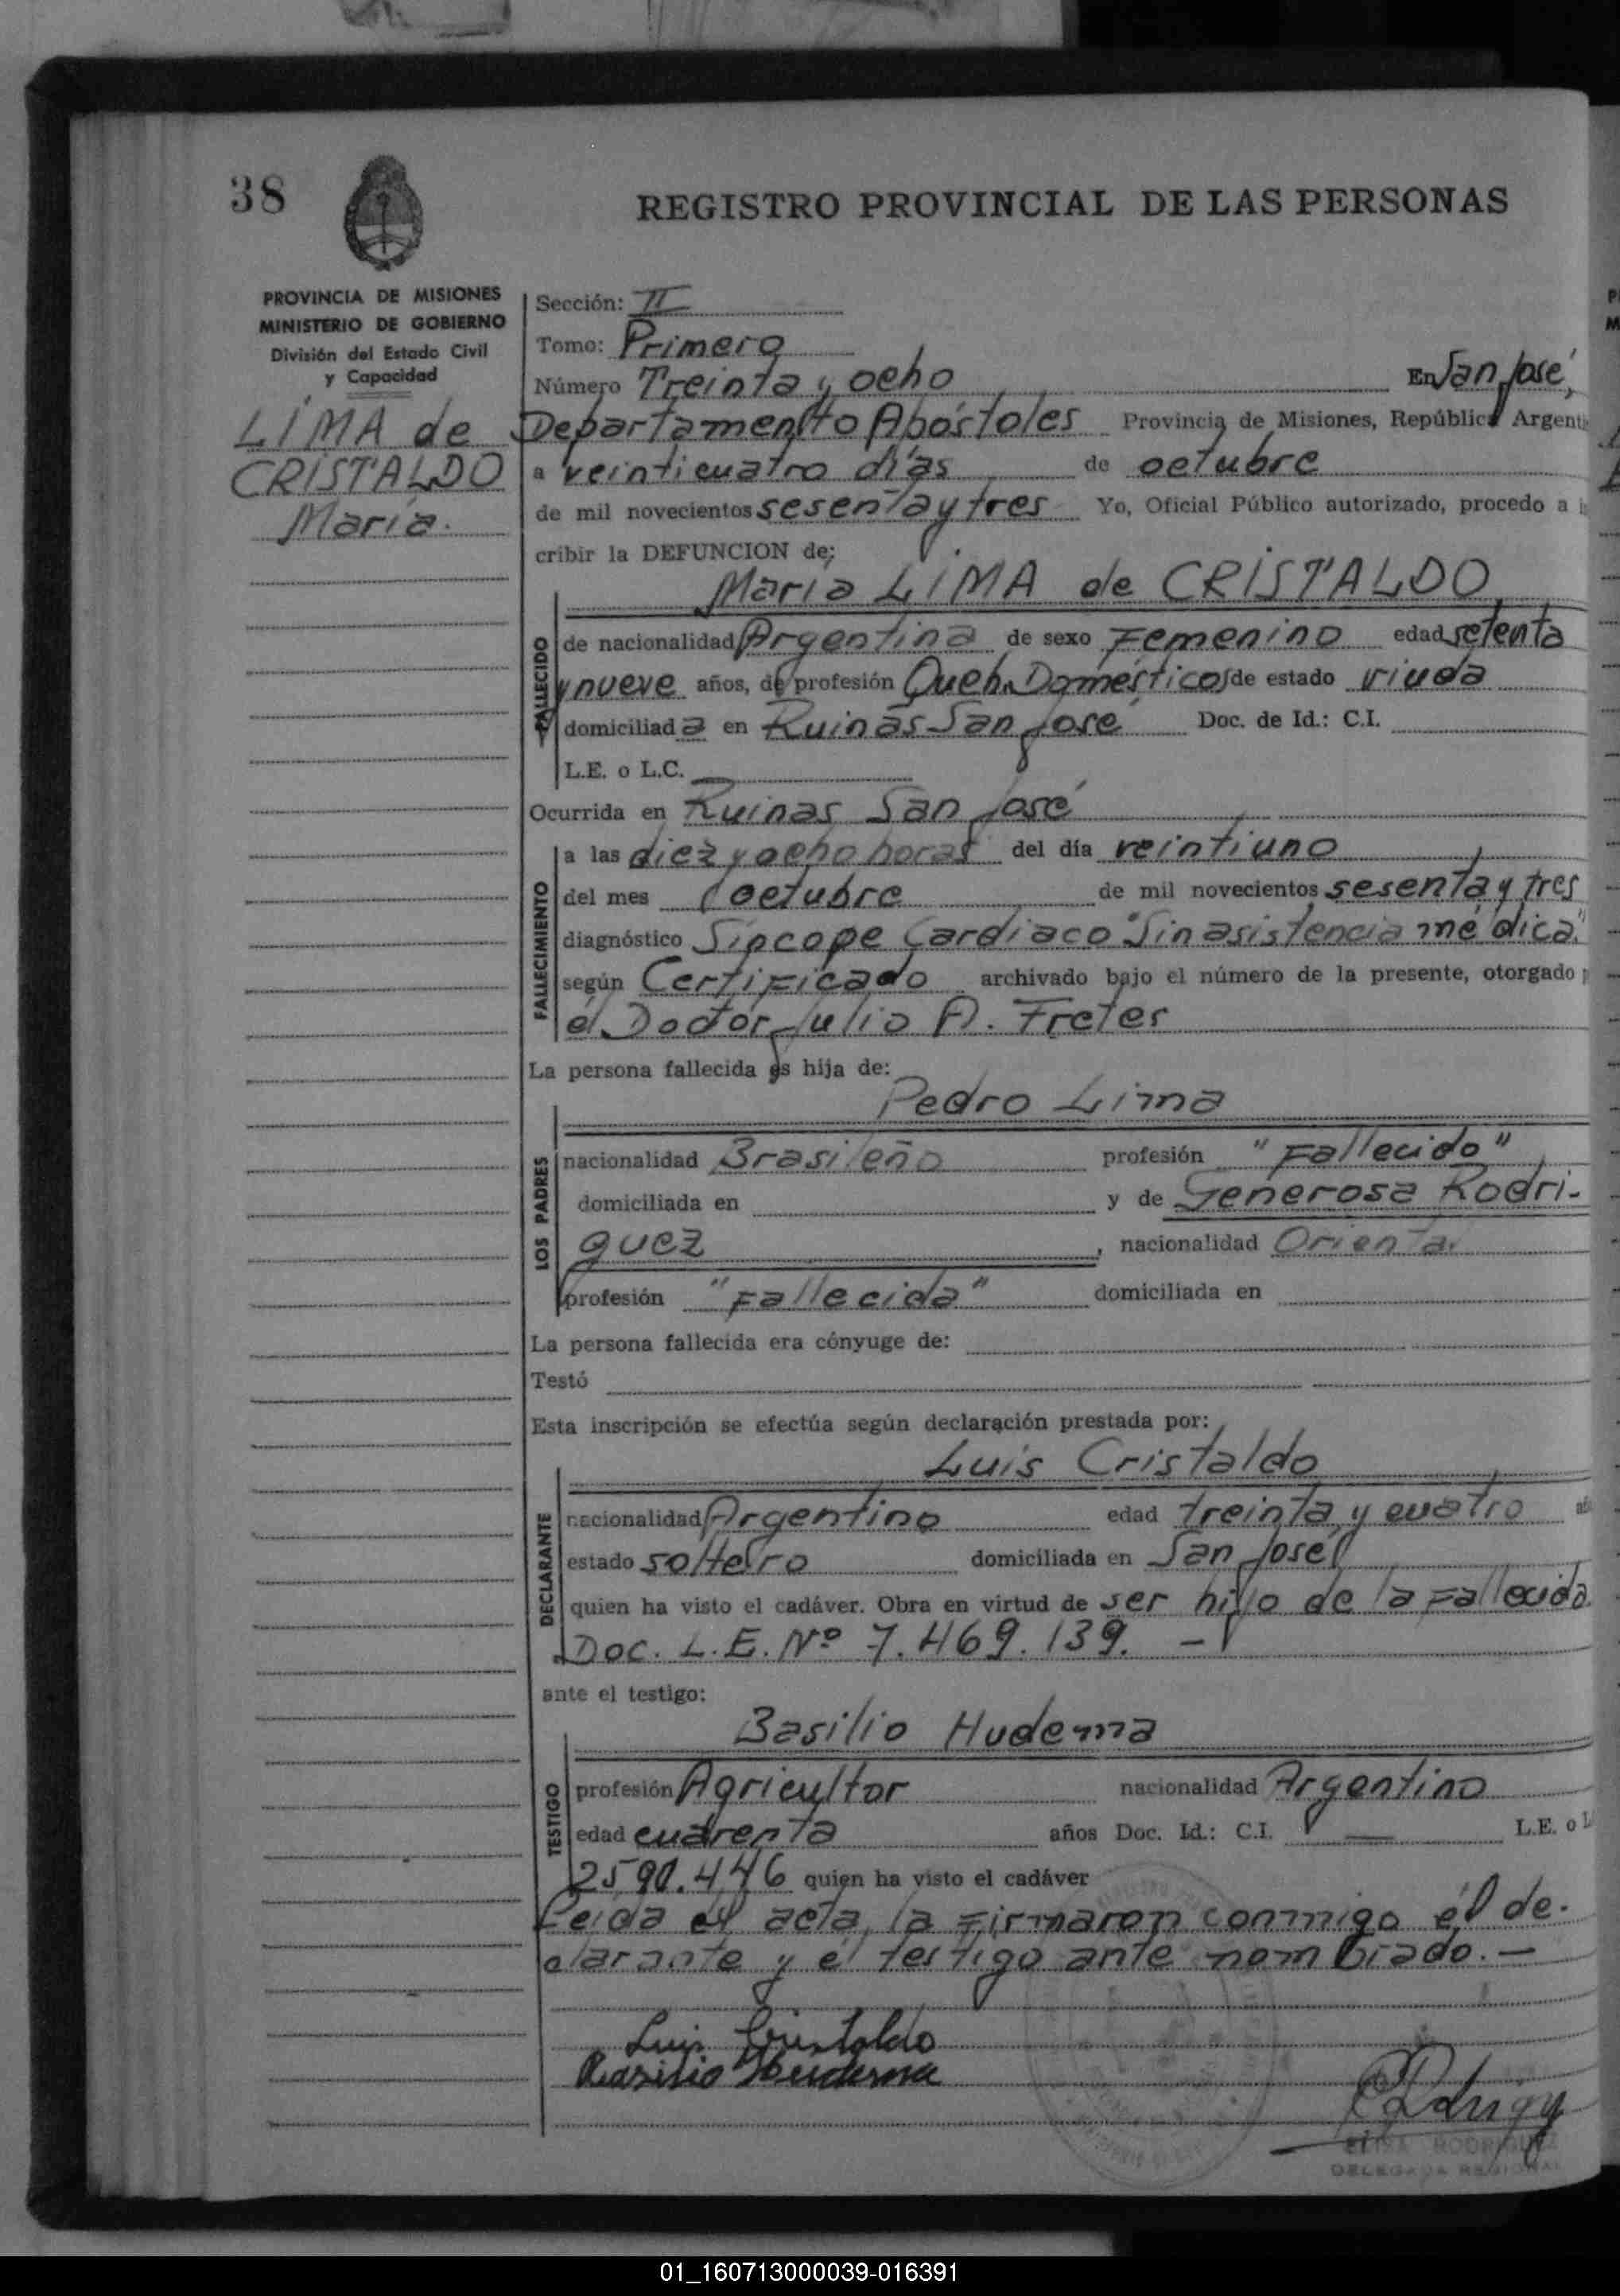 38
REGISTRO PROVINCIAL DE LAS PERSONAS
PROVINCIA DE MISIONES
MINISTERIO DE GOBIERNO
División del Estado Civil
y Capacidad
LIMA de
CRISTALDO
María.
Sección: II
Tomo: Primero
Número Treinta y ocho En San José,
Departamento Apóstoles Provincia de Misiones, República Argenti
a veinticuatro días de octubre
de mil novecientos sesenta y tres Yo, Oficial Público autorizado, procedo a i
cribir la DEFUNCION de;
María LIMA de CRISTALDO
FALLECIDO
de nacionalidad Argentina de sexo Femenino edad setenta
y nueve años, de profesión Queh. Domésticos de estado viuda
domiciliad a en Ruinas San José Doc. de Id.: C.I.
L.E. o L.C.
Ocurrida en Ruinas San José
FALLECIMIENTO
a las diez y ocho horas del día veintiuno
del mes octubre de mil novecientos sesenta y tres
diagnóstico Síncope Cardiaco "Sin asistencia médica."
según Certificado archivado bajo el número de la presente, otorgado p
el Doctor Julio A. Fretes
La persona fallecida es hija de:
Pedro Lima
LOS PADRES
nacionalidad Brasileño profesión "Fallecido"
domiciliada en y de Generosa Rodri-
guez, nacionalidad Oriental
profesión "Fallecida" domiciliada en
La persona fallecida era cónyuge de:
Testó
Esta inscripción se efectúa según declaración prestada por:
Luis Cristaldo
DECLARANTE
nacionalidad Argentino edad treinta y cuatro añ
estado soltero domiciliada en San José
quien ha visto el cadáver. Obra en virtud de ser hijo de la Fallecida.
Doc. L.E. Nº 7.469.139. -
ante el testigo:
Basilio Hudema
TESTIGO
profesión Agricultor nacionalidad Argentino
edad cuarenta años Doc. Id.: C.I. — L.E. o L
quien ha visto el cadáver
Leída el acta, la firmaron conmigo él de-
clarante y él testigo ante nombrado. —
Luis Cristaldo
Basilio Hudema
RODRIGUEZ
DELEGADA REGIONAL
01_160713000039-016391